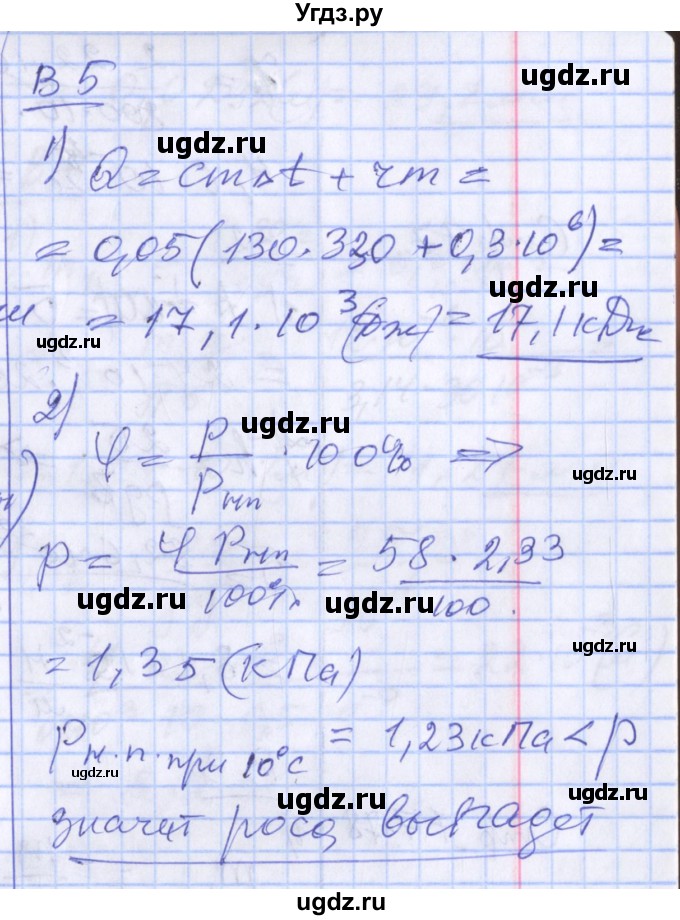 Угдз.ру
В5
ugdz.ru
1) Q = cmΔt + rm =
= 0,05(130·320 + 0,3·10⁶) =
ugdz.ru
ugdz.ru
= 17,1·10³(Дж) = 17,1кДж
ugdz.ru
2)
ugdz.ru
φ = P/Pнп · 100% =>
ugdz.ru
P = φPнп/100% = 58·2,33/100
ugdz.ru
ugdz.ru
ugdz.ru
= 1,35(кПа)
Pн.п.при 10°C = 1,23кПа < P
ugdz.ru
ugdz.ru
ugdz.ru
значит роса выпадет
ugdz.ru
ugdz.ru